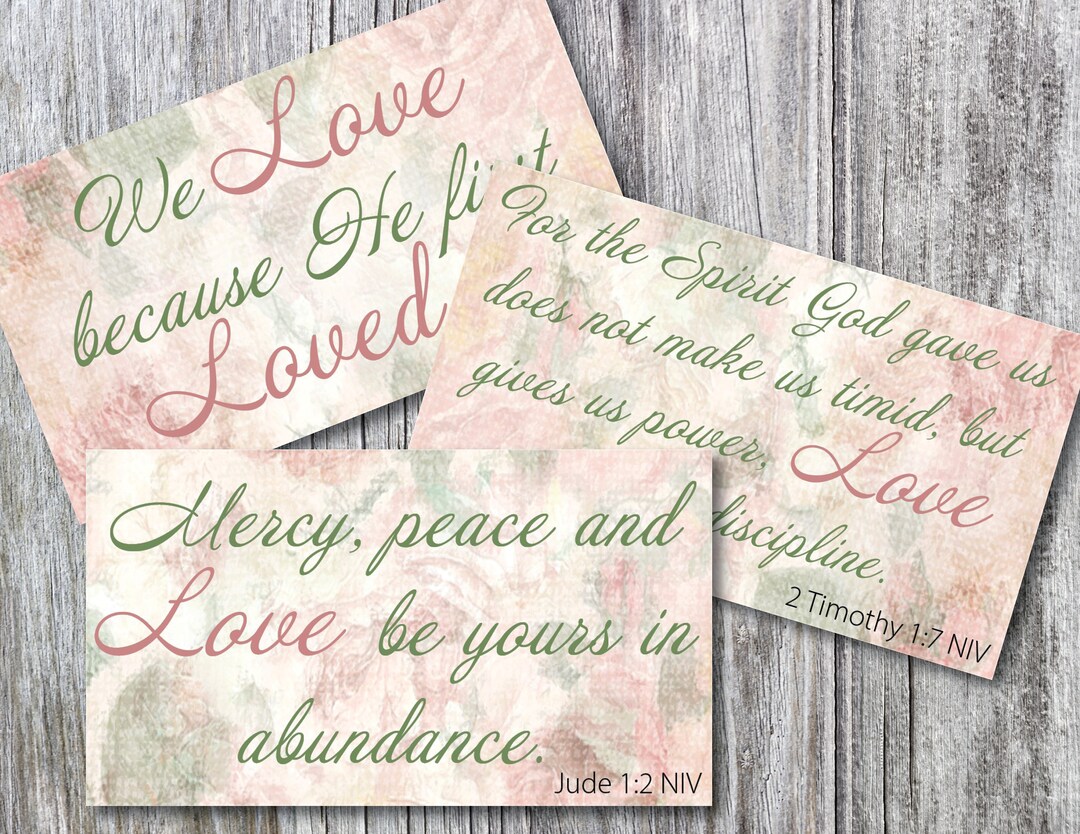 We Love
because He first
Loved
For the Spirit God gave us
does not make us timid, but
gives us power, Love
discipline.
2 Timothy 1:7 NIV
Mercy, peace and
Love be yours in
abundance.
Jude 1:2 NIV